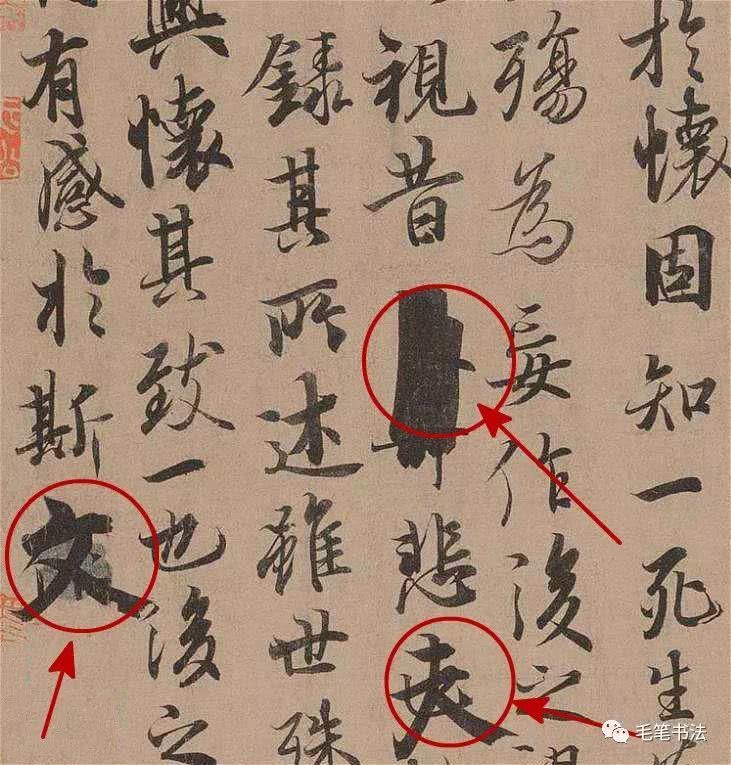 於懷固知一死生
殤為妄作後之
視昔悲夫
錄其所述雖世殊
興懷其致一也後之
有感於斯文
毛笔书法